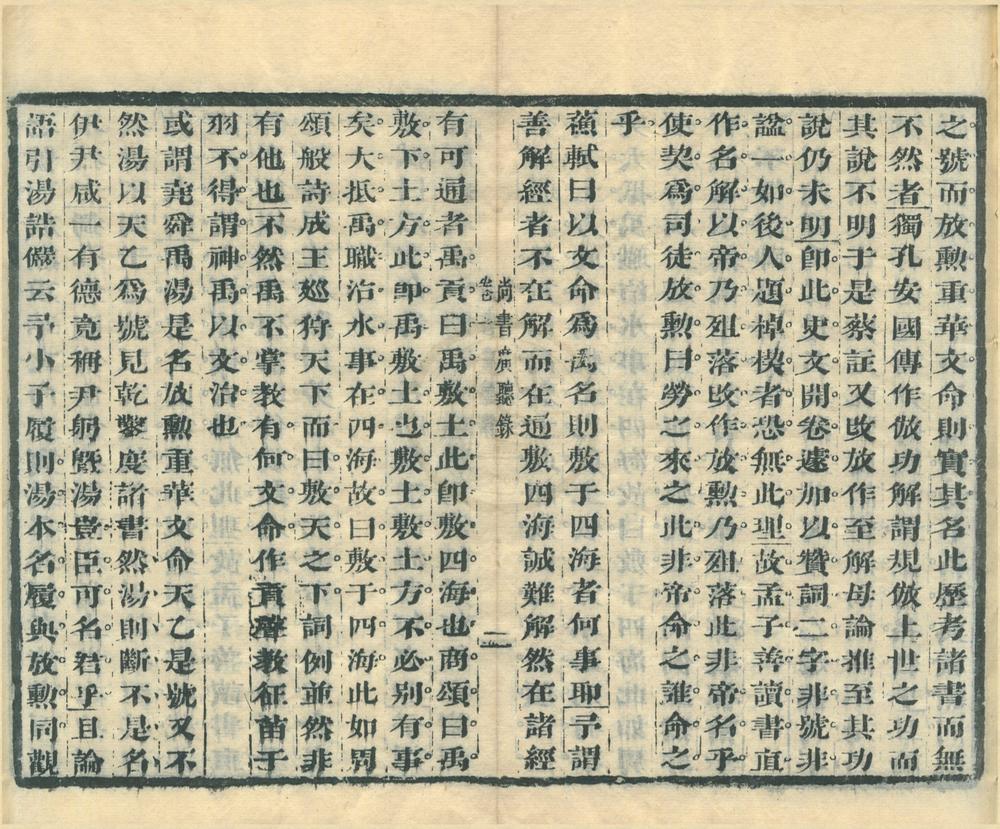 之號而放勲重華文命則實其名此歷考諸書而無
不然者獨孔安國傳作倣功解謂規倣上世之功而
其說不明于是蔡註又攺放作至解毋論推至其功
說仍未明卽此史文開卷遽加以贊詞二字非號非
諡一如後人題棹楔者恐無此理故孟子善讀書直
作名解以帝乃殂落攺作放勲乃殂落此非帝名乎
使契爲司徒放勲曰勞之來之此非帝命之誰命之
乎
蘓軾曰以文命爲禹名則敷于四海者何事耶予謂
善解經者不在解而在通敷四海誠難解然在諸經
尚書廣聽錄
卷
二
有可通者禹貢曰禹敷土此卽敷四海也商頌曰禹
敷下土方此卽禹敷土也敷土敷土方不必别有事
矣大抵禹職治水事在四海故曰敷于四海此如周
頌般詩成王廵狩天下而曰敷天之下詞例並然非
有他也不然禹不掌教有何文命作貢聲教征苗于
羽不得謂神禹以文治也
或謂堯舜禹湯是名放勲重華文命天乙是號又不
然湯以天乙爲號見乾鑿度諸書然湯則斷不是名
伊尹咸一有德竟稱尹躬曁湯豈臣可名君乎且論
語引湯誥儼云予小子履則湯本名履與放勲同觀